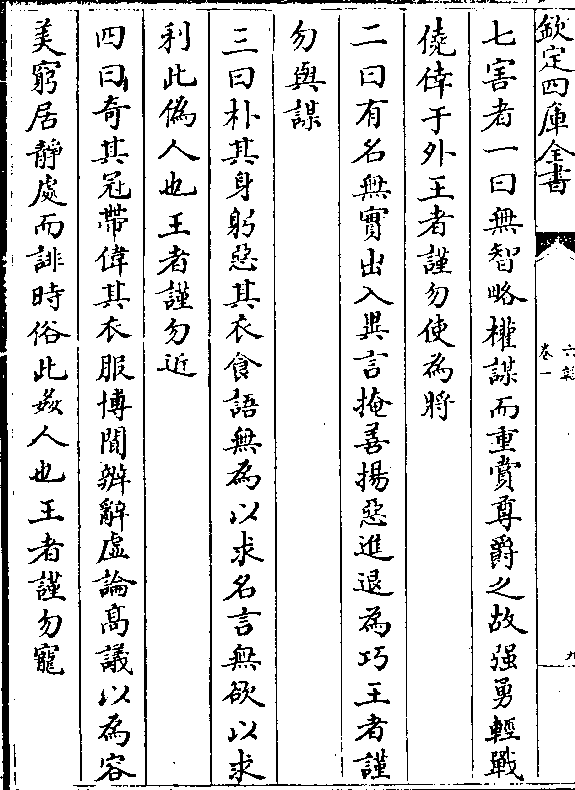 欽定四庫全書
六韜
卷一
九
七害者一曰無智略權謀而重賞尊爵之故强勇輕戰
僥倖于外王者謹勿使為將
二曰有名無實出入異言掩善揚惡進退為巧王者謹
勿與謀
三曰朴其身躬惡其衣食語無為以求名言無欲以求
利此偽人也王者謹勿近
四曰奇其冠帶偉其衣服博聞辨辭虛論高議以為容
美窮居靜處而誹時俗此姦人也王者謹勿寵